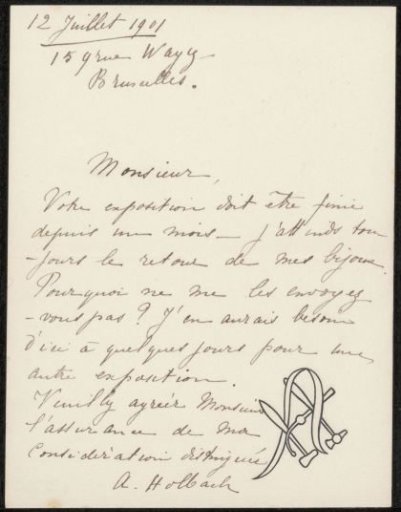 12 Juillet 1901
159 rue Wayz
Bruxelles.
Monsieur,
Votre exposition doit etre finie
depuis un mois – j'attends tou
-jours le retour de mes bijoux.
Pourquoi ne me les envoyez
-vous pas? J'en aurais besoin
d'ici à quelques jours pour une
autre exposition.
Veuillez agréer Monsieur
l'assurance de ma
Consideration distinguée
A. Holbach